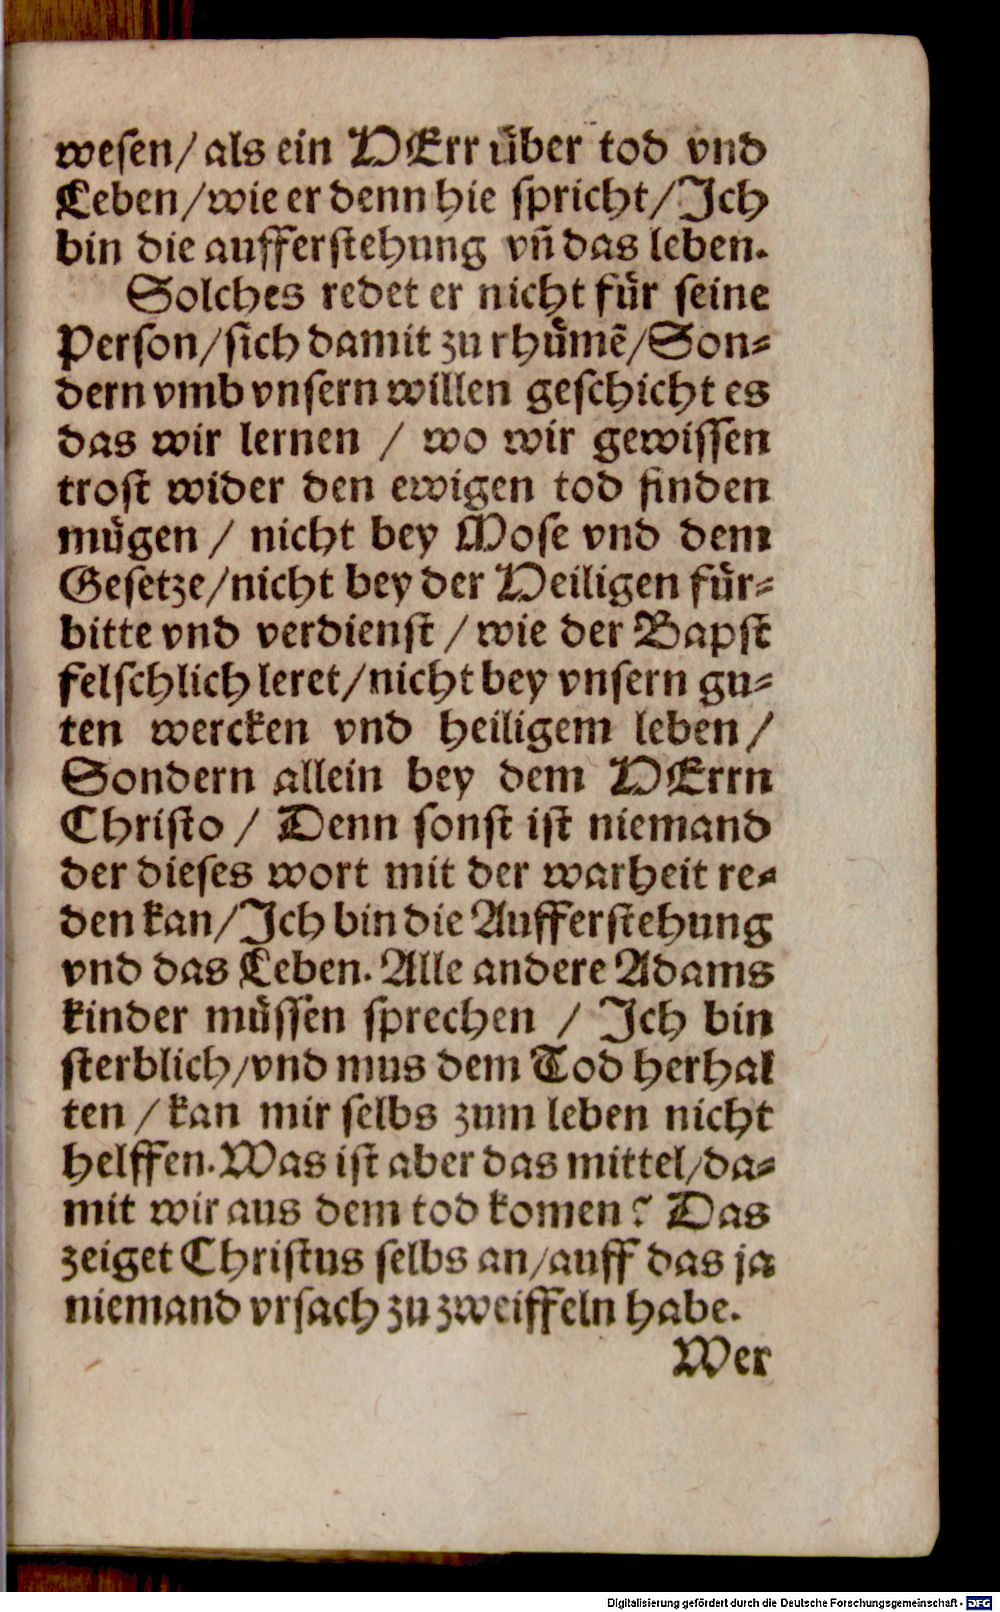 wesen/ als ein HErr uͤber tod vnd
Leben/ wie er denn hie spricht/ Ich
bin die aufferstehung vñ das leben.
Solches redet er nicht fuͤr seine
Person/ sich damit zu rhuͤmẽ/ Son⸗
dern vmb vnsern willen geschicht es
das wir lernen / wo wir gewissen
trost wider den ewigen tod finden
muͤgen / nicht bey Mose vnd dem
Gesetze/ nicht bey der Heiligen fuͤr⸗
bitte vnd verdienst / wie der Bapst
felschlich leret/ nicht bey vnsern gu⸗
ten wercken vnd heiligem leben/
Sondern allein bey dem HErrn
Christo / Denn sonst ist niemand
der dieses wort mit der warheit re⸗
den kan/ Ich bin die Aufferstehung
vnd das Leben. Alle andere Adams
kinder muͤssen sprechen / Ich bin
sterblich/ vnd mus dem Tod herhal
ten / kan mir selbs zum leben nicht
helffen. Was ist aber das mittel/ da⸗
mit wir aus dem tod komen? Das
zeiget Christus selbs an/ auff das ja
niemand vrsach zu zweiffeln habe.
Wer
Digitalisierung gefördert durch die Deutsche Forschungsgemeinschaft - DFG